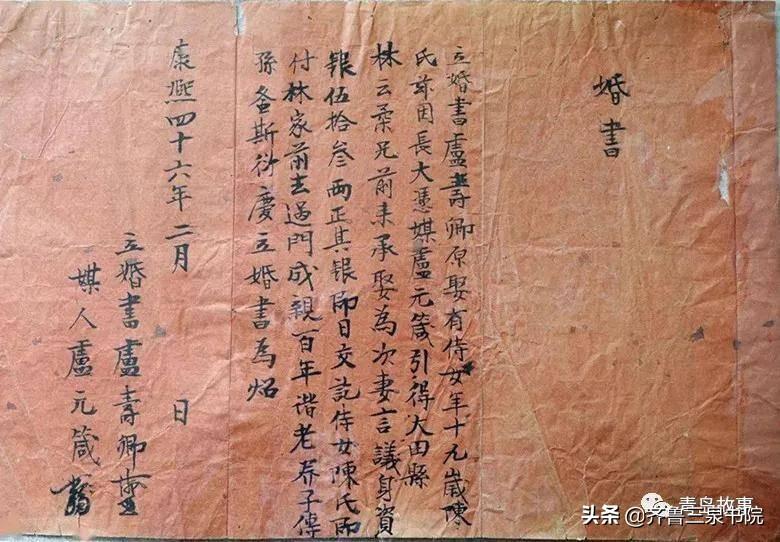 婚書
立婚書盧壽卿原娶有侍女年十九歲陳
氏茲因長大憑媒盧元箴引得大田縣
林云柔兄前來承娶為次妻言議身資
銀伍拾叁兩正其銀即日交訖侍女陳氏即
付林家前去過門成親百年谐老养子傳
孫螽斯衍慶立婚書為炤
康熙四十六年二月 日
立婚書盧壽卿
媒人盧元箴
青岛故事
头条 @齐鲁三泉书院